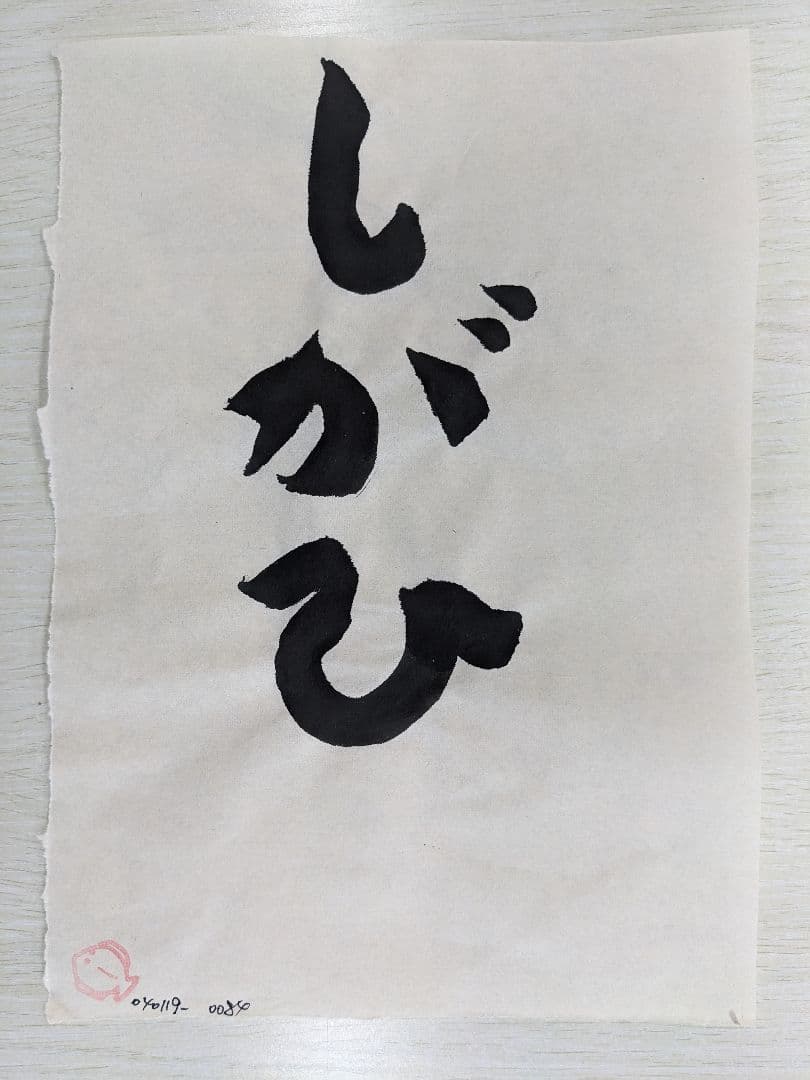 しがひ
040119- 0084